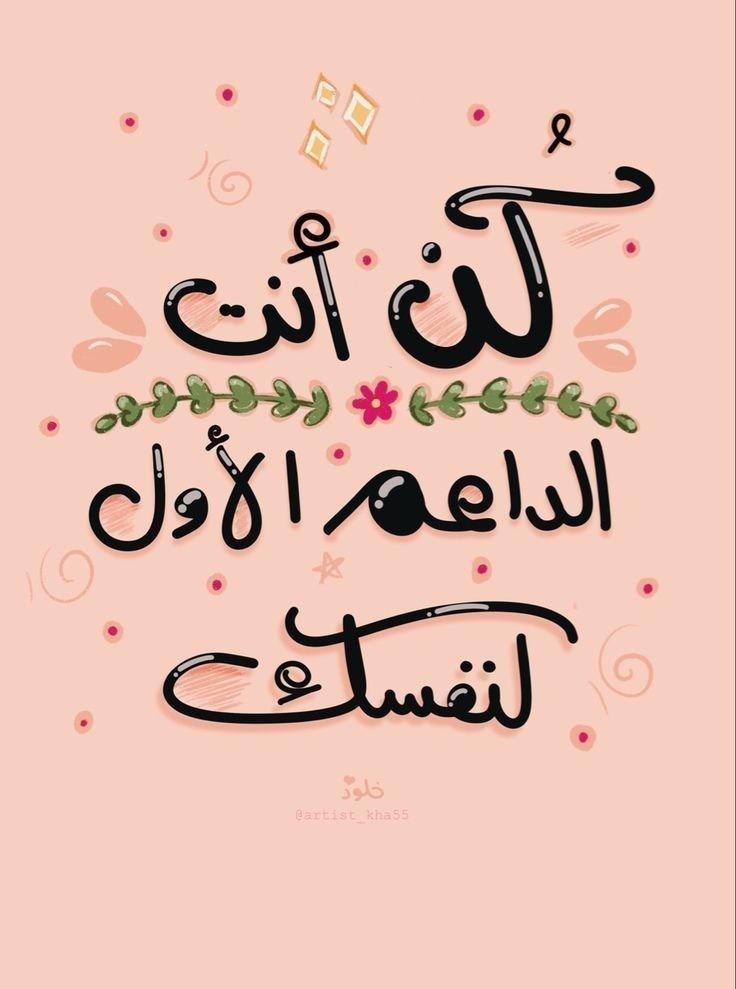 كُن أنت
الداعم الأول
لنفسك
خلود
@artist_kha55